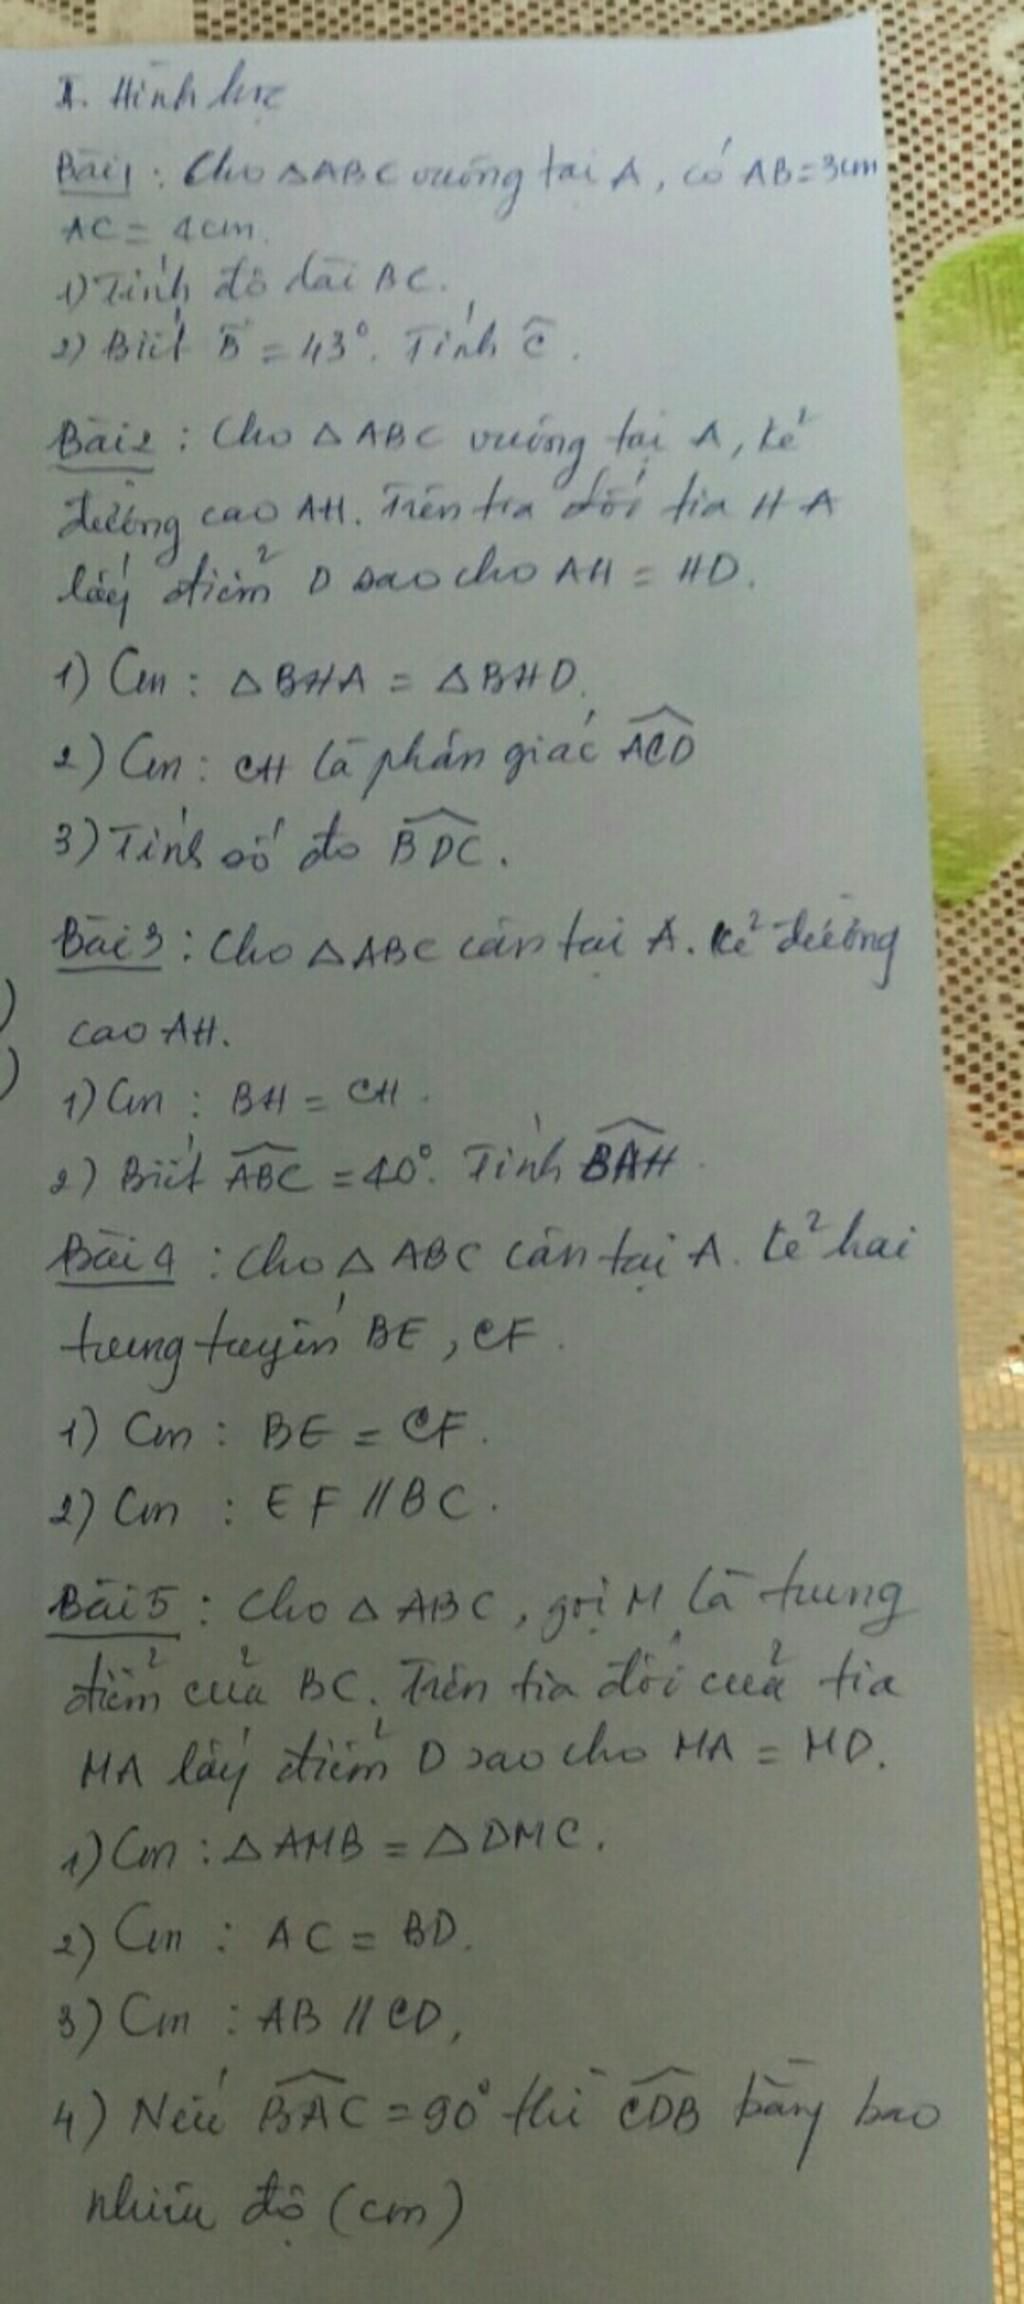 II. Hình học
Bài 1 : Cho △ABC vuông tại A, có AB=3cm
AC = 4cm.
1) Tính độ dài BC.
2) Biết B̂ = 43°. Tính Ĉ.
Bài 2 : Cho △ABC vuông tại A, kẻ
đường cao AH. Trên tia đối tia HA
lấy điểm D sao cho AH = HD.
1) Cm : △BHA = △BHD.
2) Cm : CH là phân giác ACD
3) Tính số đo BDC.
Bài 3 : Cho △ABC cân tại A. Kẻ đường
cao AH.
1) Cm : BH = CH.
2) Biết ABC = 40°. Tính BAH.
Bài 4 : Cho △ABC cân tại A. kẻ hai
trung tuyến BE, CF.
1) Cm : BE = CF.
2) Cm : EF // BC.
Bài 5 : Cho △ABC, gọi M là trung
điểm của BC. Trên tia đối của tia
MA lấy điểm D sao cho MA = MD.
1) Cm : △AMB = △DMC.
2) Cm : AC = BD.
3) Cm : AB // CD,
4) Nếu BAC = 90° thì CDB bằng bao
nhiêu độ (cm)